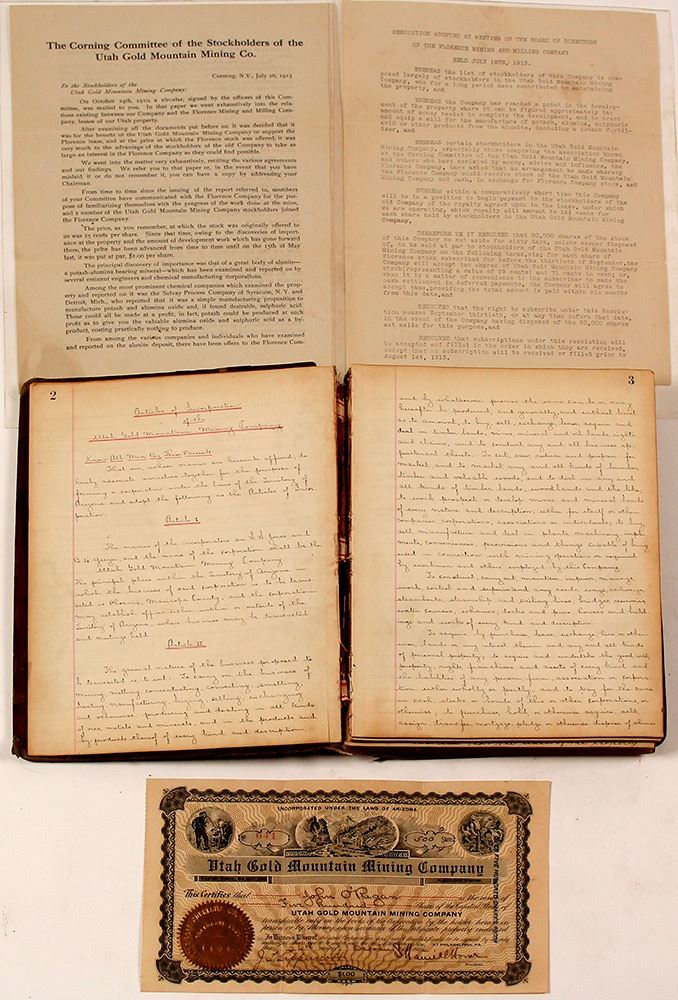 The Corning Committee of the Stockholders of the
Utah Gold Mountain Mining Co.
Corning, N.Y., July 26, 1913
To the Stockholders of the
Utah Gold Mountain Mining Company:
On October 24th, 1910, a circular, signed by the officers of this Com-
mittee, was mailed to you. In that paper we went exhaustively into the rela-
tions existing between our Company and the Florence Mining and Milling Com-
pany, lessee of our Utah property.
After examining all the documents put before us, it was decided that it
was for the benefit of the Utah Gold Mountain Mining Company to support the
Florence lease, and at the price at which the Florence stock was offered, it was
very much to the advantage of the stockholders of the old Company to take as
large an interest in the Florence Company as they could find possible.
We went into the matter very exhaustively, reciting the various agreements
and our findings. We refer you to that paper or, in the event that you have
mislaid it or do not remember it, you can have a copy by addressing your
Chairman.
From time to time since the issuing of the report referred to, members
of your Committee have communicated with the Florence Company for the pur-
pose of familiarizing themselves with the progress of the work done at the mine,
and a number of the Utah Gold Mountain Mining Company stockholders joined
the Florence Company.
The price, as you remember, at which the stock was originally offered to
us was 25 cents per share. Since that time, owing to the discoveries of import-
ance at the property and the amount of development work which has gone forward
there, the price has been advanced from time to time until on the 19th of May
last, it was put at par, $1.00 per share.
The principal discovery of importance was that of a great body of alunite—
a potash-alumina bearing mineral—which has been examined and reported on by
several eminent engineers and chemical manufacturing corporations.
Among the most prominent chemical companies which examined the prop-
erty and reported on it was the Solvay Process Company of Syracuse, N. Y. and
Detroit, Mich., who reported that it was a simple manufacturing proposition to
manufacture potash and alumina oxide and, if found desirable, sulphuric acid.
These could all be made at a profit; in fact, potash could be produced at such
profit as to give you the valuable alumina oxide and sulphuric acid as a by-
product, costing practically nothing to produce.
From among the various companies and individuals who have examined
and reported on the alunite deposit, there have been offers to the Florence Com-
RESOLUTION ADOPTED AT MEETING OF THE BOARD OF DIRECTORS
OF THE FLORENCE MINING AND MILLING COMPANY
HELD JULY 18TH, 1913.
WHEREAS the list of stockholders of this Company is com-
posed largely of stockholders in the Utah Gold Mountain Mining
Company, who for a long period have contributed to maintaining
the property, and
WHEREAS the Company has reached a point in the develop-
ment of the property where it can be figured approximately the
amount of money needed to complete the development, and to erect
and equip a mill for the manufacture of potash, alumina, sulphuric
acid or other products from the alunite, including a potash fertil-
izer, and
WHEREAS certain stockholders in the Utah Gold Mountain
Mining Company, especially those composing the association known
as the Corning Committee of the Utah Gold Mountain Mining Company,
and others who have assisted by money, advice and influence, the
Florence Company, have asked that an arrangement be made whereby
the Florence Company would receive stock of the Utah Gold Mountain
Mining Company and cash, in exchange for Florence Company stock, and
WHEREAS within a comparatively short time this Company
will be in a position to begin payment to the stockholders of the
old Company of the royalty agreed upon in the lease, under which
we are operating, which royalty will amount to
each share held by stockholders in the Utah Gold Mountain Mining
Company,
THEREFORE BE IT RESOLVED that 50,000 shares of the stock
of this Company be set aside for sixty days, unless sooner disposed
of, to be sold at par to stockholders of the Utah Gold Mountain
Mining Company on the following terms, viz: for each share of
Florence stock subscribed for before the thirtieth of September, the
Company will accept one share of Utah Gold Mountain Mining Company
stock (representing a value of 29 cents) and 71 cents in cash; or,
when it is a matter of convenience to the subscriber to make the
cash settlement in deferred payments, the Company will agree to
accept same, providing the total amount is paid within six months
from this date, and
RESOLVED that the right to subscribe under this Resolu-
tion ceases September thirtieth, or at any time before that date,
in the event of the Company having disposed of the 50,000 shares
set aside for this purpose, and
RESOLVED that subscriptions under this resolution will
be accepted and filled in the order in which they are received,
except that no subscription will be received or filled prior to
August 1st, 1913.
2
Articles of Incorporation
of the
Utah Gold Mountain Mining Company
Know All Men By These Presents
That we, whose names are hereunto affixed, do
hereby associate ourselves together for the purpose of
forming a corporation under the laws of the Territory of
Arizona and adopt the following as the Articles of Incor
poration.
Article I
The names of the incorporators are
and the name of the corporation shall be the
Utah Gold Mountain Mining Company
The principal place within the Territory of Arizona in
which the business of said corporation is to be trans-
acted is Phoenix, Maricopa County, and the corporation
may establish offices either within or outside of the
Territory of Arizona, where business may be transacted
and meetings held.
Article II
The general nature of the business proposed to
be transacted is, to wit: To carry on the business of
mining, milling, concentrating, converting, smelting,
treating, manufacturing, buying, selling, exchanging
and otherwise producing and dealing in all kinds
of ores, metals and minerals, and in the products and
by-products thereof of every kind and description
3
and by whatsoever process the same can be or may
hereafter be produced, and generally, and without limit
as to amount, to buy, sell, exchange, lease, acquire and
deal in lands, mines and mineral rights
and claims, and to conduct any and all business ap-
purtenant thereto. To cut, saw, reduce and prepare for
market and to market any and all kinds of lumber,
timber and valuable woods, and to deal in any and
all kinds of timber lands, wood lands and the like,
to work, prospect or develop mines and mineral lands
of every nature and description, either for itself or other
companies, corporations, associations or individuals, to buy,
sell, manufacture and deal in plants, machinery, imple
ments, conveniences, provisions and things capable of being
used in connection with mining operations or required
by workmen and others employed by the Company.
To construct, carry out, maintain, improve, manage,
work, control and superintend any roads, ways, railways,
bridges, reservoirs,
water courses,
ings and works of every kind and description.
To acquire by purchase, lease, exchange, hire or other-
wise, lands or any interest therein and any and all kinds
of personal property; to acquire and undertake the good will,
property, rights, franchises and assets of every kind and
the liabilities of any person, firm, association or corpora-
tion, either wholly or partly, and to pay for the same
in cash, stocks or bonds of this or other corporations, or
otherwise, to purchase, hold or otherwise acquire, sell,
assign, transfer, mortgage, pledge or otherwise dispose of shares
INCORPORATED UNDER THE LAWS OF ARIZONA
500 Shares
Utah Gold Mountain Mining Company
This Certifies that John O'Regan is the owner of
Five Hundred Shares of the Capital Stock of
UTAH GOLD MOUNTAIN MINING COMPANY
transferable only on the books of the Corporation by the holder hereof in
person or by Attorney upon surrender of this Certificate properly endorsed
In Witness Whereof
AT PHILADELPHIA, PA.
President
$1.00